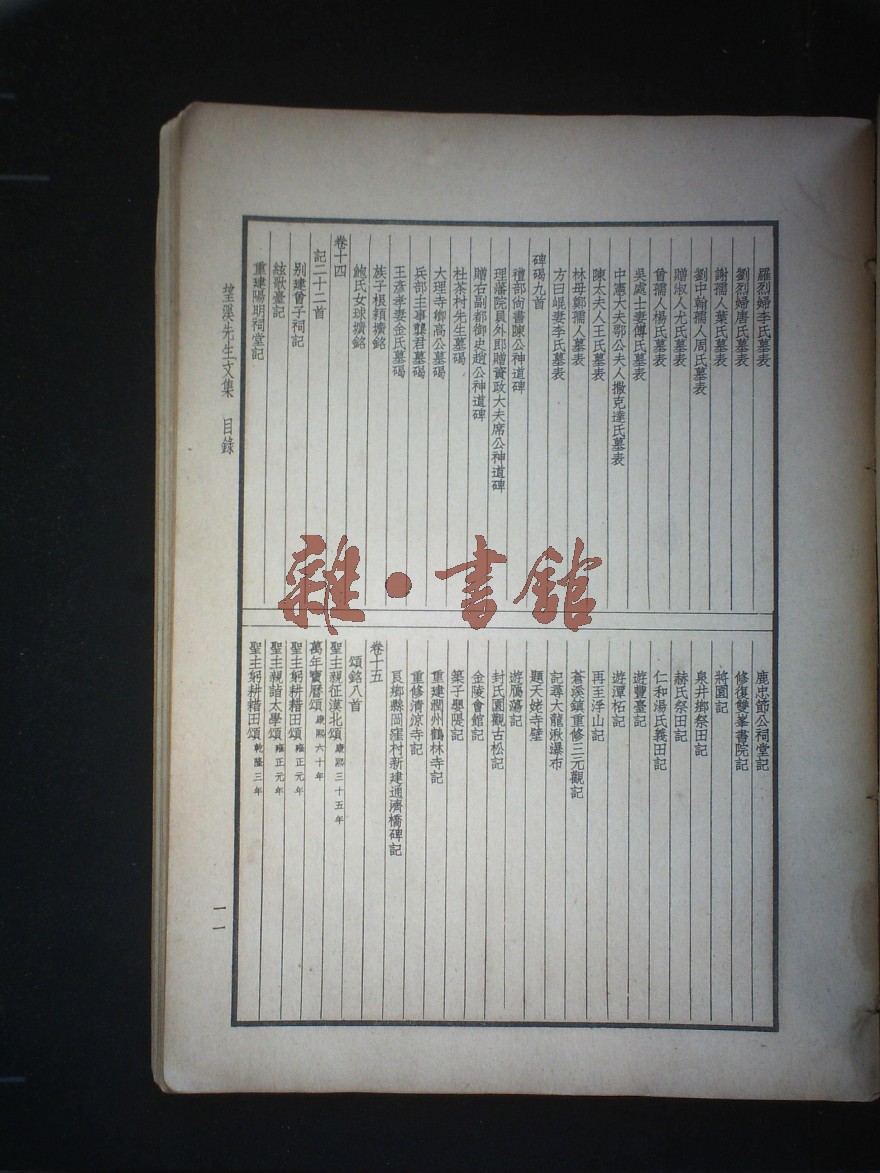 羅烈婦李氏墓表
劉烈婦唐氏墓表
謝孺人葉氏墓表
劉中翰孺人周氏墓表
贈淑人尤氏墓表
曾孺人楊氏墓表
吳處士妻傅氏墓表
中憲大夫鄂公夫人撒克達氏墓表
陳太夫人王氏墓表
林母鄭孺人墓表
方曰崐妻李氏墓表
碑碣九首
禮部尚書陳公神道碑
理藩院員外郎贈資政大夫席公神道碑
贈右副都御史趙公神道碑
杜茶村先生墓碣
大理寺卿高公墓碣
兵部主事龔君墓碣
王彥孝妻金氏墓碣
族子根穎壙銘
鮑氏女球壙銘
卷十四
記二十二首
別建曾子祠記
絃歌臺記
重建陽明祠堂記
鹿忠節公祠堂記
修復雙峯書院記
將園記
泉井鄉祭田記
赫氏祭田記
仁和湯氏義田記
遊豐臺記
遊潭柘記
再至浮山記
蒼溪鎮重修三元觀記
記尋大龍湫瀑布
題天姥寺壁
遊鴈蕩記
封氏園觀古松記
金陵會館記
築子嬰隄記
重建潤州鶴林寺記
重修清涼寺記
良鄉縣岡窪村新建通濟橋碑記
卷十五
頌銘八首
聖主親征漠北頌康熙三十五年
萬年寶曆頌康熙六十年
聖主躬耕耤田頌雍正元年
聖主親詣太學頌雍正元年
聖主躬耕耤田頌乾隆三年
望溪先生文集 目錄
一一
雜·書館